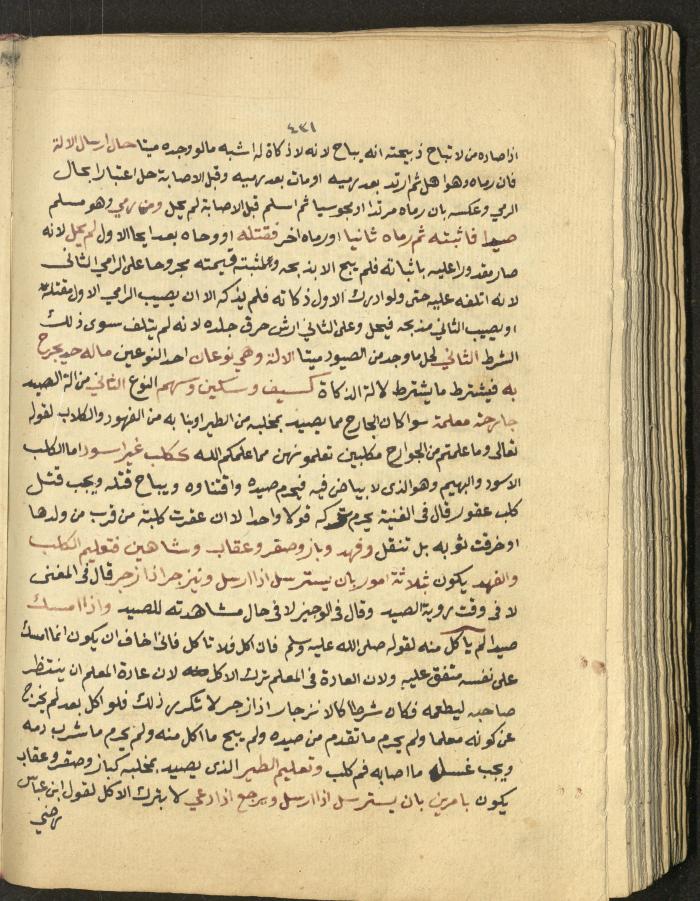 ٤٣١
اذا صاده من لا تباح ذبيحته انه يباح لانه لا ذكاة له اشبه ما لو وجده ميتا حال ارسال الالة
فان رماه وهو اهل ثم ارتد بعد رميه او مات بعد رميه وقبل الاصابة حل اعتبارا بحال
الرمي وعكسه بان رماه مرتدا او مجوسيا ثم اسلم قبل الاصابة لم يحل ومن رمي وهو مسلم
صيدا فاثبته ثم رماه ثانيا او رماه اخر فقتله او وجاه بعد ايحا الاول لم يحل لانه
صار مقدورا عليه باثباته فلم يبح الا بذبحه ولمثبته قيمته مجروحا على الرامي الثاني
لانه اتلفه عليه حتى ولو ادرك الاول ذكاته فلم يذكه الا ان يصيب الرامي الاول مقتله
او يصيب الثاني مذبحه فيحل وعلى الثاني ارش خرق جلده لانه لم يتلف سوى ذلك
الشرط الثاني لحل ما وجد من الصيود ميتا الالة وهي نوعان احد النوعين ماله حد يجرح
به فيشترط ما يشترط لالة الذكاة كسيف وسكين وسهم النوع الثاني من الة الصيد
جارحة معلمة سوا كان الجارح مما يصيد بمخلبه من الطير او بنابه من الفهود والكلاب لقوله
تعالى وما علمتم من الجوارح مكلبين تعلمونهن مما علمكم الله ككلب غير اسود اما الكلب
الاسود والبهيم وهو الذي لا بياض فيه فيحرم صيده واقتناوه ويباح قتله ويجب قتل
كلب عقور قال في الغنية يحرم تركه قولا واحدا لا ان عقرت كلبته من قرب من ولدها
او خرقت ثوبه بل تنقل وفهد وباز وصقر وعقاب وشاهين فتعليم الكلب
والفهد يكون بثلاثة امور بان يسترسل اذا ارسل وينزجر اذا زجر قال في المغنى
لا في وقت روية الصيد وقال في الوجيز لا في حال مشاهدته للصيد واذا امسك
صيدا لم ياكل منه لقوله صلى الله عليه وسلم فان اكل فلا تاكل فانى اخاف ان يكون انما امسك
على نفسه متفق عليه ولان العادة في المعلم ترك الاكل لان عادة المعلم ان ينتظر
صاحبه ليطعمه فكان شرطا كالانزجار اذا زجر لا تكرر ذلك فلو اكل بعد لم يخرج
عن كونه معلما ولم يحرم ما تقدم من صيده ولم يبح ما اكل منه ولم يحرم ما شرب دمه
ويجب غسل ما اصابه فم كلب وتعليم الطير الذي يصيد بمخلبه كباز وصقر وعقاب
يكون بامرين بان يسترسل اذا ارسل ويرجع اذا دعي لا بترك الاكل لقول ابن عباس
رضي